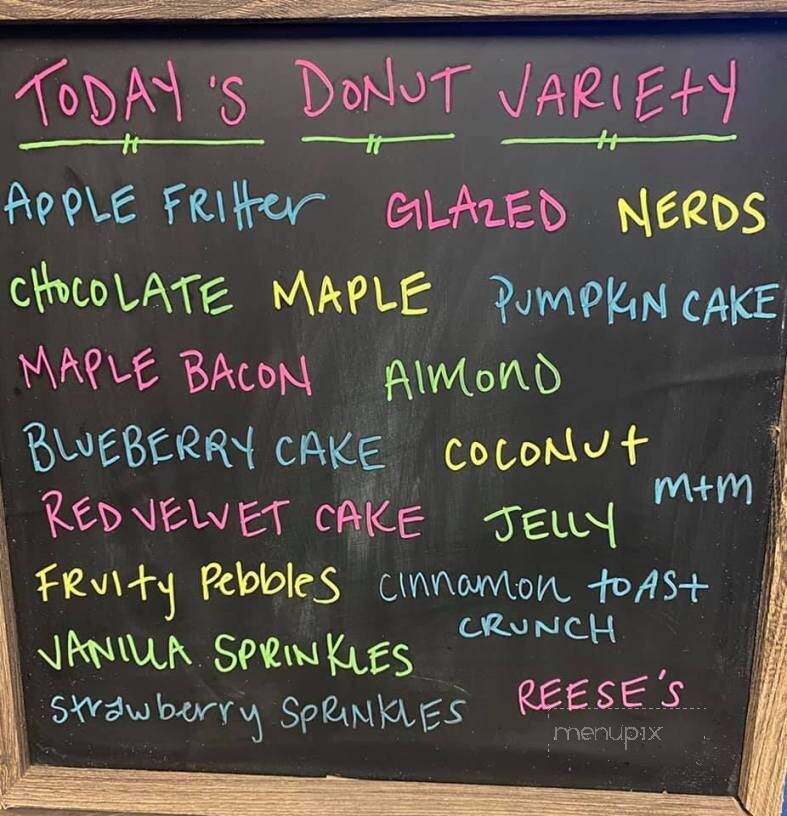 TODAY'S DONUT VARIETY
APPLE FRITTER GLAZED NERDS
CHOCOLATE MAPLE PUMPKIN CAKE
MAPLE BACON ALMOND
BLUEBERRY CAKE COCONUT
M+M
RED VELVET CAKE JELLY
FRUITY PEBBLES CINNAMON TOAST
CRUNCH
VANILLA SPRINKLES
REESE'S
STRAWBERRY SPRINKLES
menupix